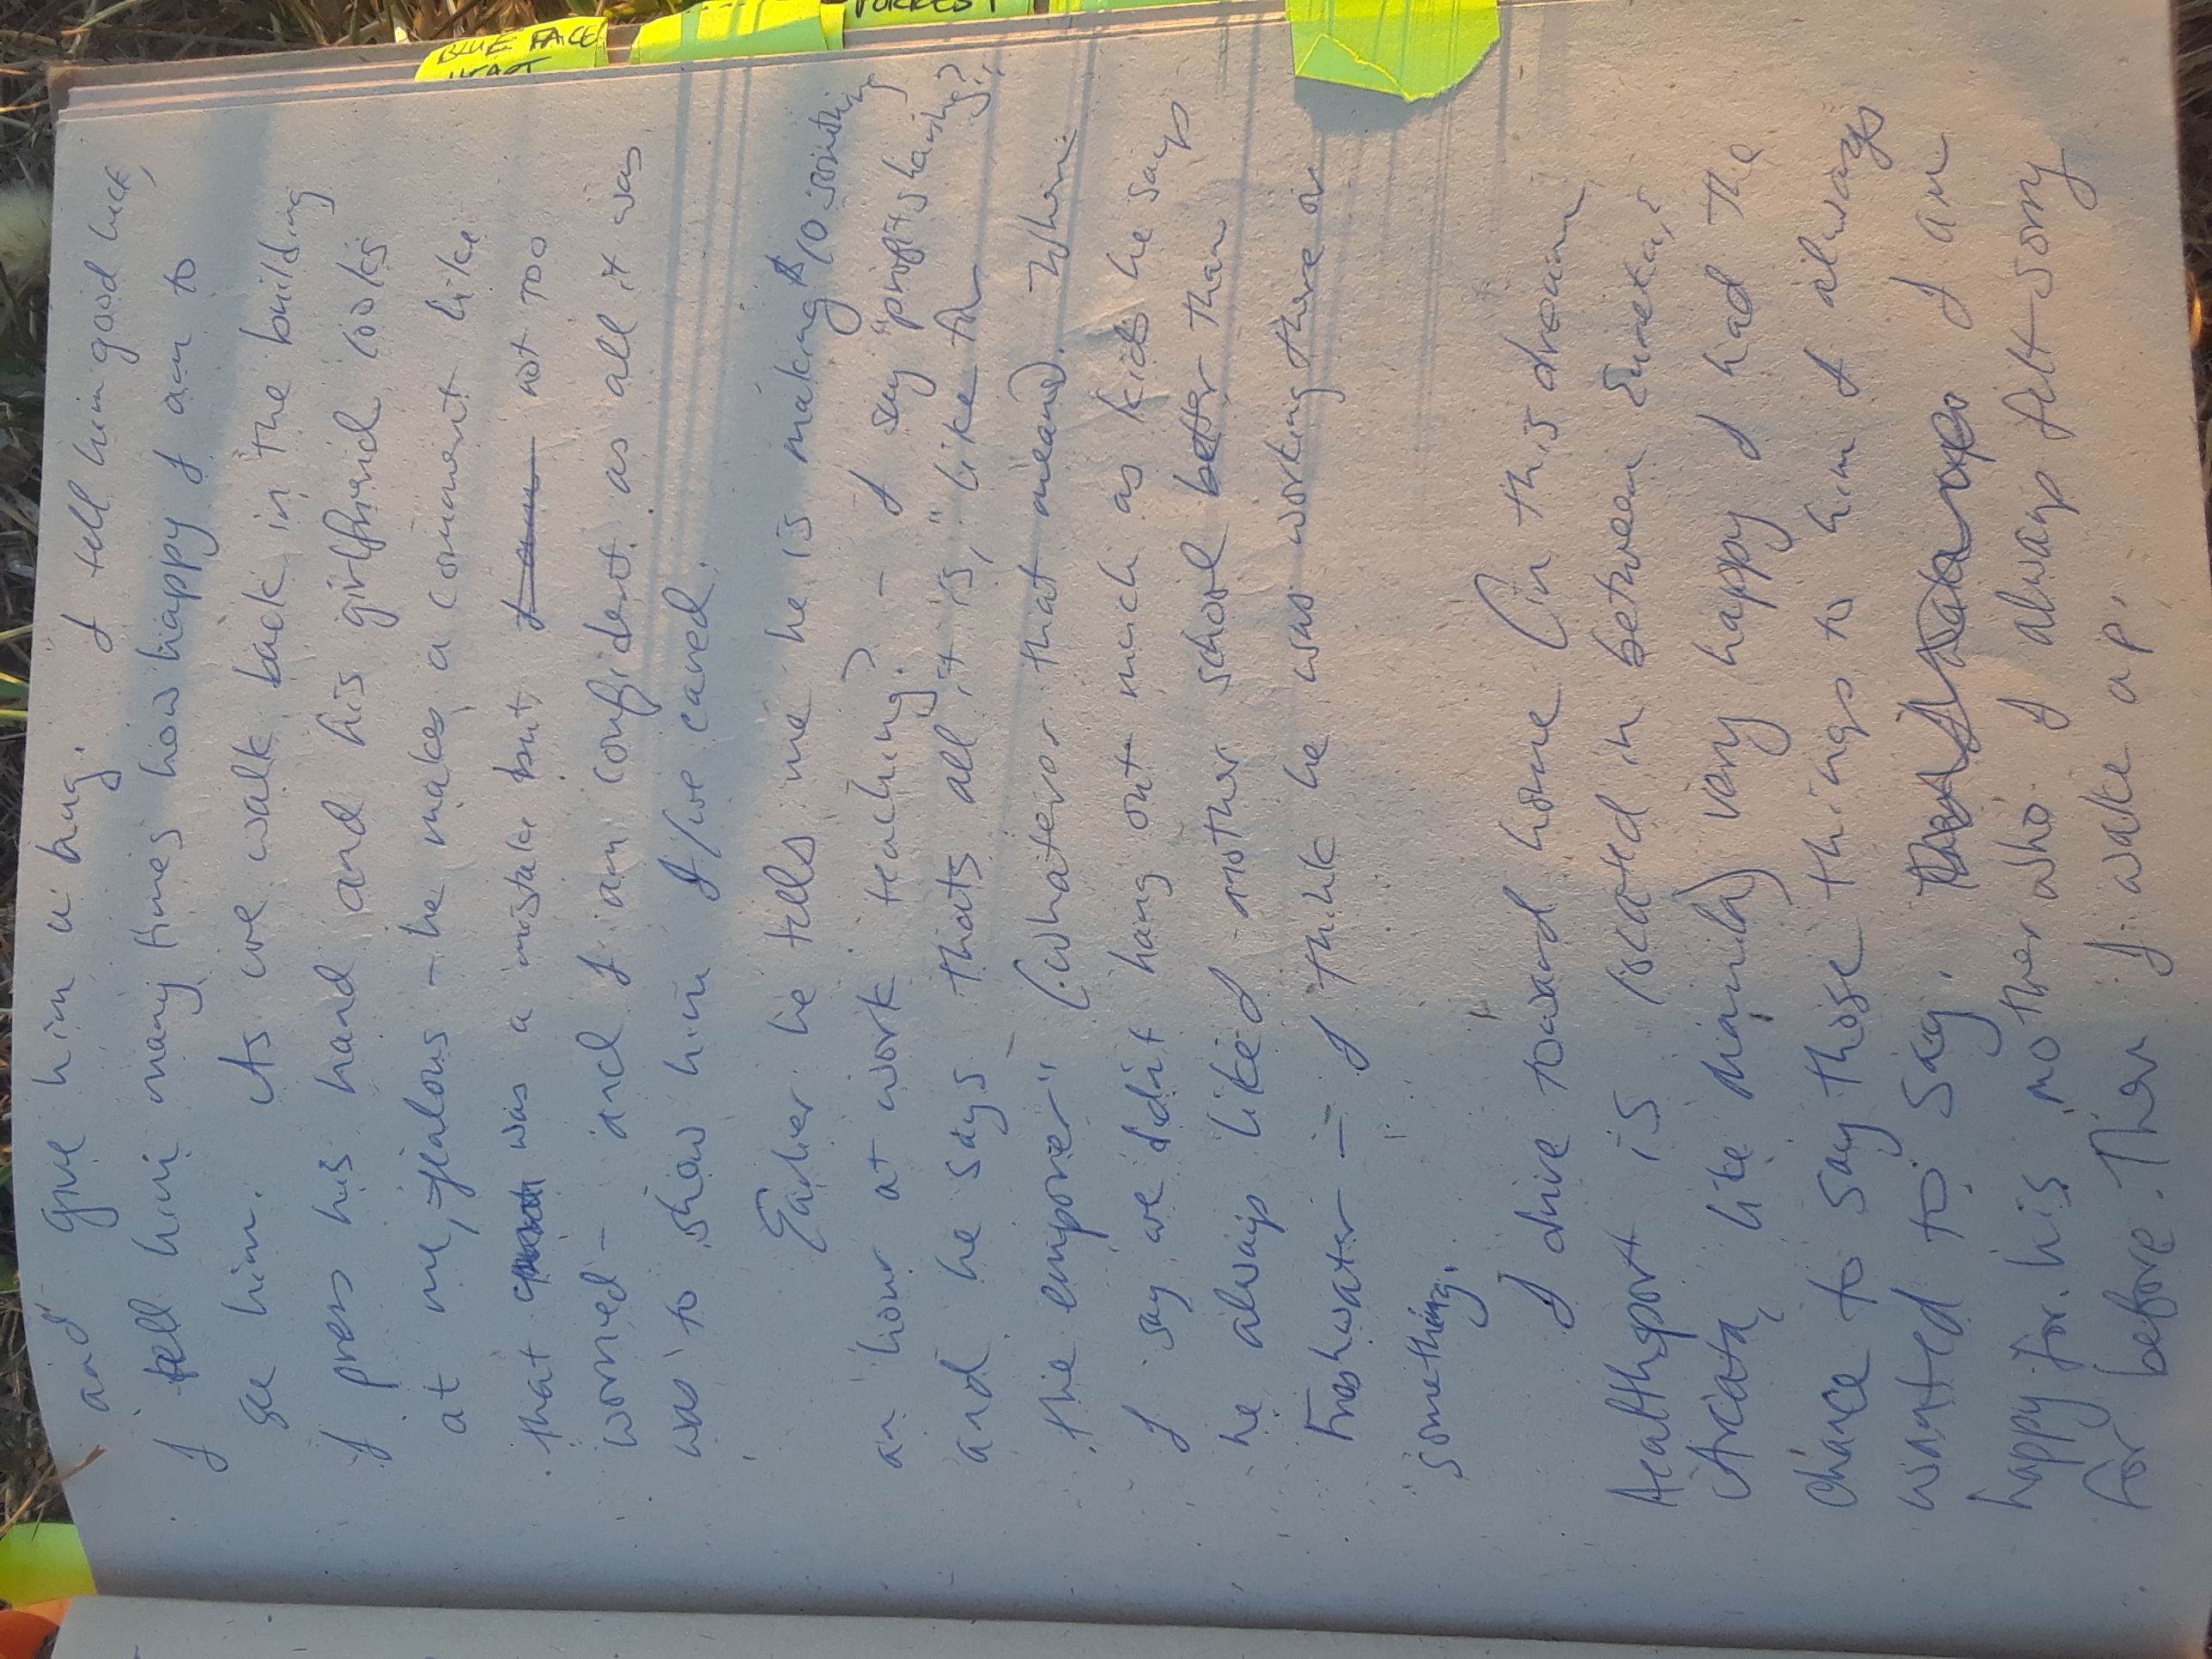 and give him a hug. I tell him good luck,
I tell him many times how happy I am to
see him. As we walk back in the building
I press his hand and his girlfriend looks
at me, jealous - he makes a comment like
that was a mistake but, I am not too
worried - and I am confident as all it was
was to show him I/we cared.
Earlier he tells me he is making $10 something
an hour at work teaching? - I say "profit sharing?"
and he says thats all it is," like for
the emporer" (whatever that meand). When
I say we didnt hang out much as kids he says
he always liked mother school better than
Freshwater - I think he was working there or
something.
I drive toward home (in this dream
Healthsport is located in between Eureka, &
Arcata, like manila) very happy I had the
chance to say those things to him I always
wanted to say. I am
happy for his mother who I always felt sorry
for before. Then I wake up.
BLUE FACE
HEART
FORREST